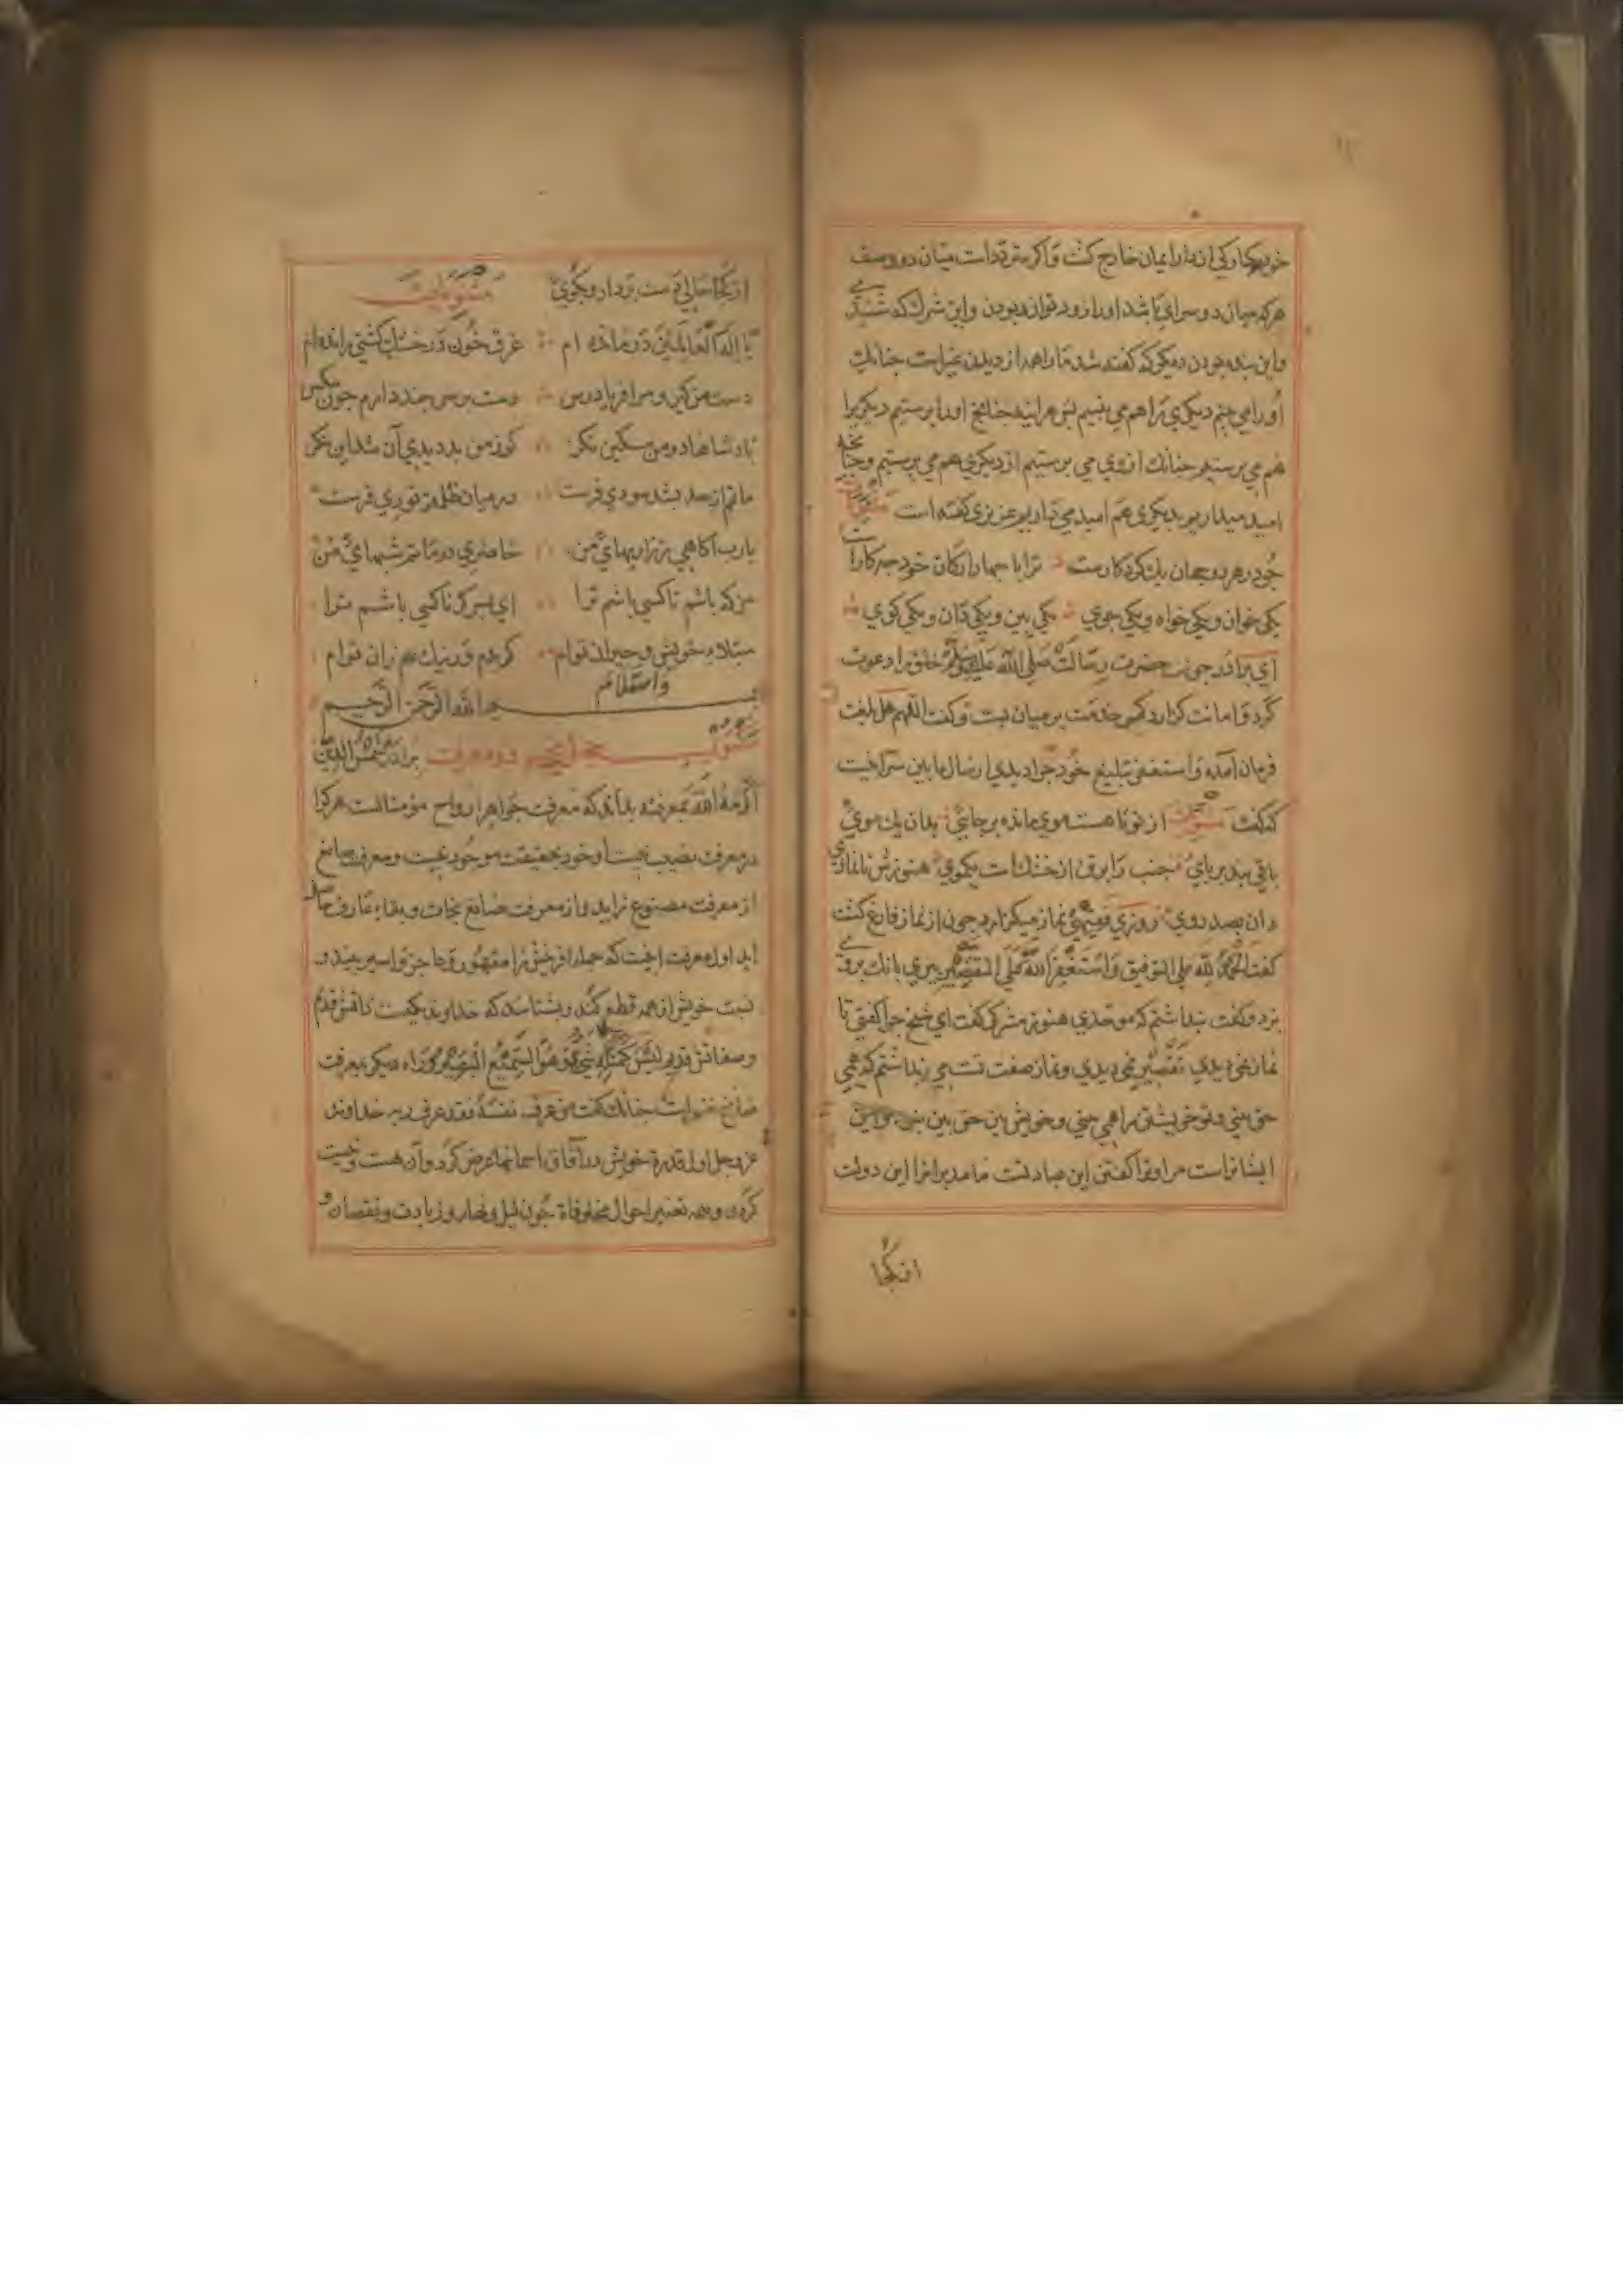 هرکه میان دو سرای باشد او را زود توان ربودن و این شرک که شنیدی
و این بنده بودن دیکر که کفته شد ما را همه از دیدن غیر است جنانک
او را می بینم دیکری را هم می بینیم جنانج او را برستیم دیکری را
هم می برستیم جنانک از وی می ترسیم از دیکری هم می ترسیم و جنانجه
امید میداریم بدیکری هم امید می داریم عزیزی کفته است مثنوی
جو در هر دو جهان یک کردکارست ترا با جهار ارکان خود جه کارست
یکی خوان و یکی خواه و یکی جوی یکی بین و یکی دان و یکی کوی
ای برادر جون حضرت رسالت صلی الله علیه وسلم خلق را دعوت
کرد و امانت کزارد کمر خدمت بر میان بست و کفت اللهم هل بلغت
فرمان آمد و استغفر تبلیغ خود جرا دیدی ارسال ما بین
از تو تا هست موی مانده بر جای بدان یک موی
باقی بند بر بای جنب را بر تن ار خشک است یکموی هنوزش نانمازی
دان بصد روی روزی فقیهی نماز میکزارد جون از نماز فارغ کشت
کفت الحمد لله علی التوفیق و استغفر الله علی التقصیر بیری بانک بر وی
بزد و کفت بنداشتم که موحدی هنوز مشرکی کفت ای شیخ جرا کفتی تا
نماز نمی دیدی تقصیر نمی دیدی و نماز صفت تست می بنداشتم که همی
حق بینی و تو خویشتن را همی بینی و خویش بین حق بین نبود
ایشانراست مر او ترا کفتن این عبادتست نامد برا ترا این دولت
از نکجا
از نکجا خالی دست بردار و بکوی مثنویات
یا اله العالمین درمانده ام غرق خون در خشک کشتی رانده ام
دست من کیر و مرا فریاد رس دست بر سر جند دارم جون مکس
بادشاها در من مسکین نکر کر ز من بد دیدی آن شد این نکر
ماتم از حد بشد سوری فرست در میان ظلمتم نوری فرست
یا رب آکاهی ز زاریهای من حاضری در ماتم شبهای من
من که باشم تا کسی باشم ترا این بس کر ناکسی باشم ترا
مبتلاء خویش و حیران توام کر بدم ور نیک هم زان توام
والسلام
بسم الله الرحمن الرحیم
مکتوب جهل و بنجم در معرفت برادر شمس الدین
اکرمه الله بمعرفته بداند که معرفت جواهر ارواح مؤمنانست هر کرا
در معرفت نصیب نیست او خود بحقیقت موجود نیست و معرفت صانع
از معرفت مصنوع زاید و از معرفت صانع نجات و بقاء عارف حاصل
آید اول معرفت آنست که جمله آفرینش را مقهور و عاجز و اسیر بیند و
نسبت خویش از همه قطع کند و بشناسد که خداوند یکیست ذاتش قدیم
و صفاتش قدیم لیس کمثله شیء وهو السمیع البصیر و راه دیکر بمعرفت
صانع جنانک کفت من عرف نفسه فقد عرف ربه خداوند
عز و جل اول قدرة خویش در آفاق آسمانها عرض کرد و آن هست و نیست
کردن و تغییر احوال مخلوقات جون لیل و نهار و زیادت و نقصان و